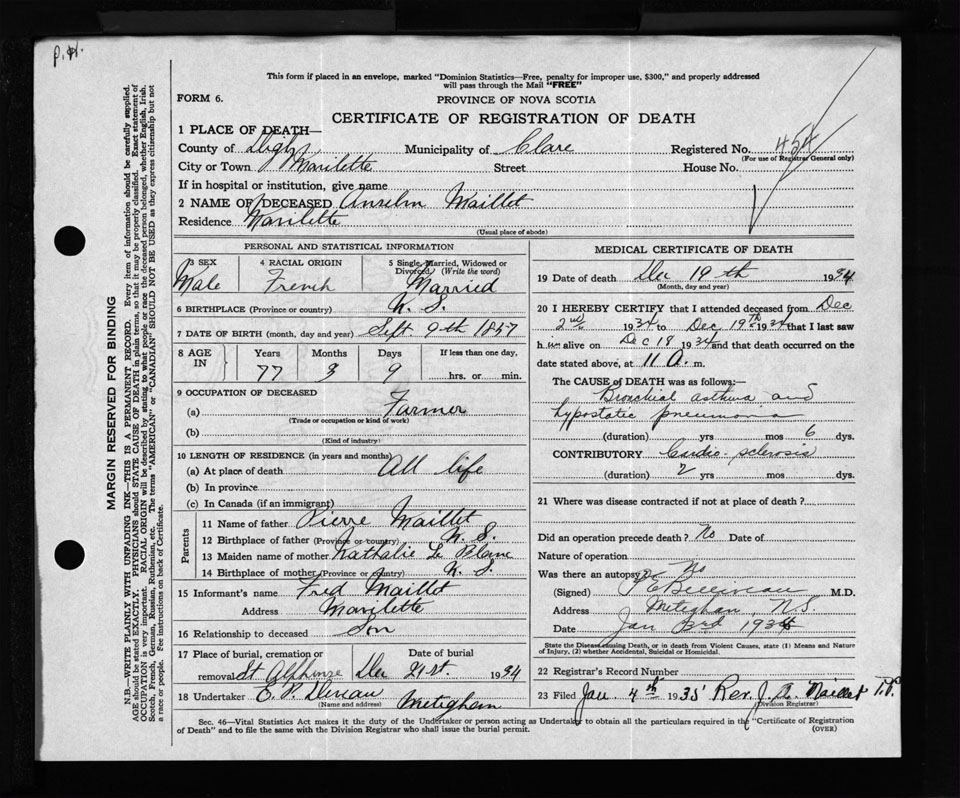 P.H.
This form if placed in an envelope, marked "Dominion Statistics—Free, penalty for improper use, $300," and properly addressed
will pass through the Mail "FREE"
FORM 6.
PROVINCE OF NOVA SCOTIA
CERTIFICATE OF REGISTRATION OF DEATH
1 PLACE OF DEATH—
County of Digby Municipality of Clare Registered No. 454
(For use of Registrar General only)
City or Town Mavilette Street House No.
If in hospital or institution, give name
2 NAME OF DECEASED Anselm Maillet
Residence Mavilette
(Usual place of abode)
PERSONAL AND STATISTICAL INFORMATION
3 SEX 4 RACIAL ORIGIN 5 Single, Married, Widowed or
Divorced (Write the word)
Male French Married
6 BIRTHPLACE (Province or country) N. S.
7 DATE OF BIRTH (month, day and year) Sept. 9th 1857
8 AGE IN Years Months Days If less than one day,
77 3 9 hrs. or min.
9 OCCUPATION OF DECEASED
(a) Farmer
(Trade or occupation or kind of work)
(b)
(Kind of industry)
10 LENGTH OF RESIDENCE (in years and months)
(a) At place of death All life
(b) In province
(c) In Canada (if an immigrant)
Parents
11 Name of father Pierre Maillet
12 Birthplace of father (Province or country) N. S.
13 Maiden name of mother Nathalie Le Blanc
14 Birthplace of mother (Province or country) N. S
15 Informant's name Fred Maillet
Address Mavilette
16 Relationship to deceased Son
17 Place of burial, cremation or Date of burial
removal St. Alphonse Dec 21st. 1934
18 Undertaker
(Name and address) Meteghan
MEDICAL CERTIFICATE OF DEATH
19 Date of death Dec 19th 1934
(Month, day and year)
20 I HEREBY CERTIFY that I attended deceased from Dec
2nd 1934 to Dec 19th 1934 that I last saw
h im alive on Dec 18 1934 and that death occurred on the
date stated above, at 11 A. m.
The CAUSE OF DEATH was as follows:—
Bronchial asthma and
hypostatic pneumonia
(duration) yrs mos 6 dys.
CONTRIBUTORY Cardio-sclerosis
(duration) 2 yrs mos dys.
21 Where was disease contracted if not at place of death?
Did an operation precede death? No Date of
Nature of operation
Was there an autopsy? No
(Signed) P E Belliveau M.D.
Address Meteghan, N.S.
Date Jan 3rd 1934
State the Disease Causing Death, or in death from Violent Causes, state (1) Means and Nature
of Injury, (2) whether Accidental, Suicidal or Homicidal.
22 Registrar's Record Number
23 Filed Jan 4th 1935 Rev. J. A. Maillet
(Division Registrar)
Sec. 46—Vital Statistics Act makes it the duty of the Undertaker or person acting as Undertaker to obtain all the particulars required in the "Certificate of Registration
of Death" and to file the same with the Division Registrar who shall issue the burial permit. (OVER)
MARGIN RESERVED FOR BINDING
N.B.—WRITE PLAINLY WITH UNFADING INK—THIS IS A PERMANENT RECORD. Every item of information should be carefully supplied.
AGE should be stated EXACTLY. PHYSICIANS should STATE CAUSE OF DEATH in plain terms, so that it may be properly classified. Exact statement of
OCCUPATION is very important. RACIAL ORIGIN will be described by stating to what people or race the deceased person belonged, whether English, Irish,
Scotch, French, German, Russian, Ruthenian, etc. The terms "AMERICAN" or "CANADIAN" SHOULD NOT BE USED as they express citizenship but not
a race or people. See instructions on back of Certificate.